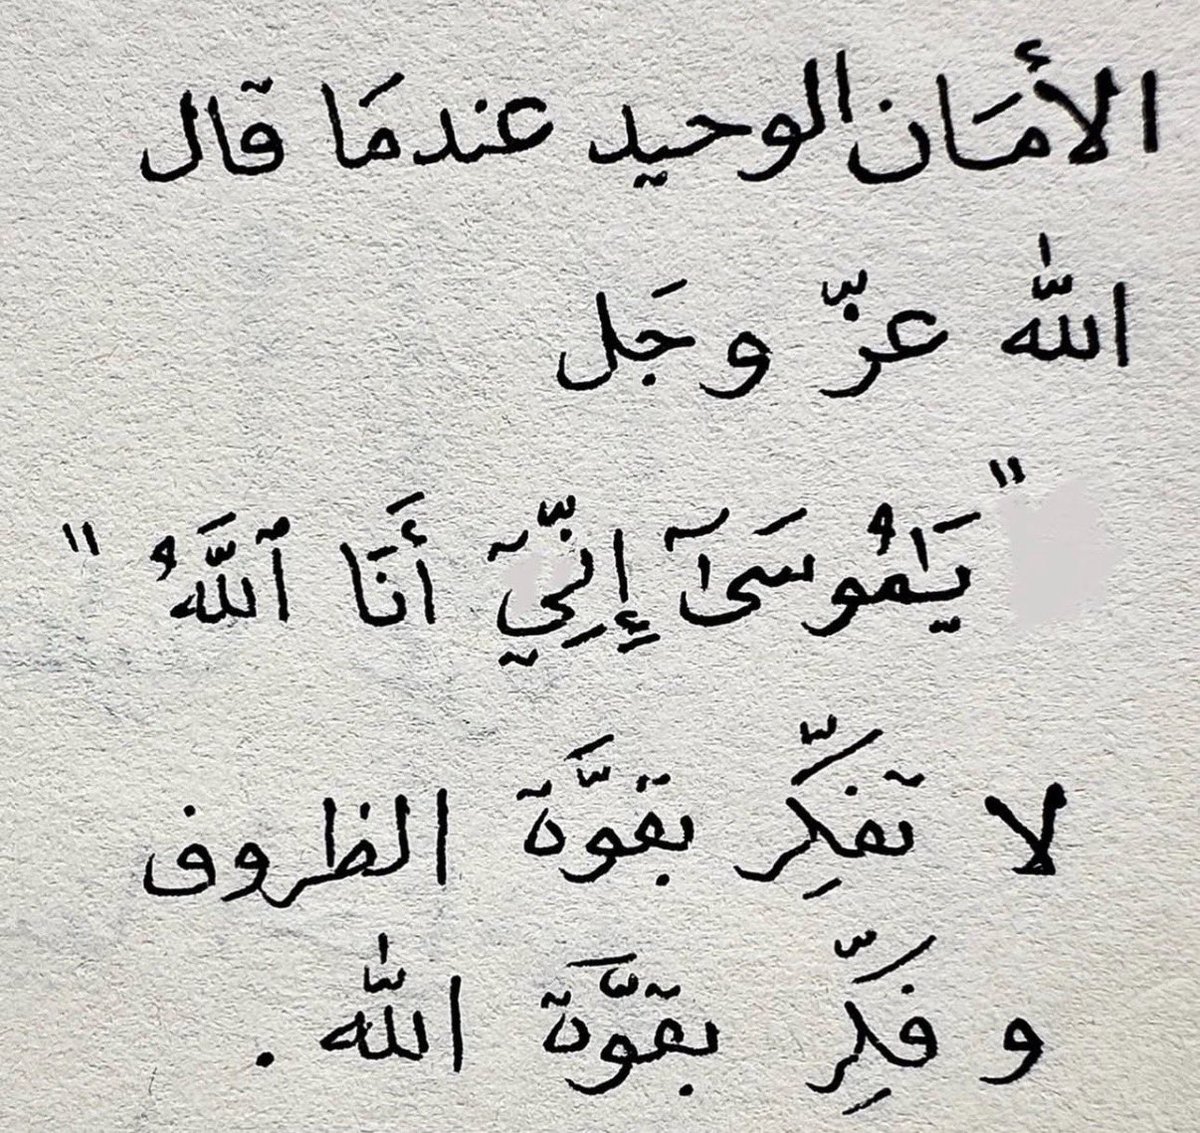 الأمَان الوحيد عندمَا قال
اللّٰه عزّ وجَل
"يَـٰمُوسَىٰٓ إِنِّيٓ أَنَا ٱللَّهُ"
لا تفكِّر بقوَّة الظروف
و فكِّر بقوَّة اللّٰه .